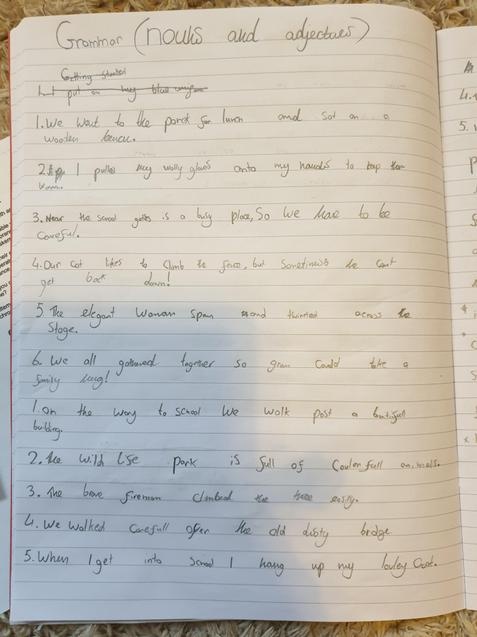 Grammar (nouns and adjectives)
Getting started
1. I put on my blue
1. We want to the park for lunch and sat on a
wooden bench.
2. I pulled my wolly gloves onto my hands to keep
warm.
3. Near the school gates is a busy place, So we have to be
Careful.
4. Our cat likes to climb the fence, but sometimes he cant
get back down!
5 The elegant woman span and twirled across the
Stage.
6. We all gathered together so gran could take a
family
1. on the way to school we walk past a
building.
2. The wild life park is full of Coulerfull animals.
3. The brave fireman climbed the tree easily.
4. We walked carefull over the old dusty bridge
5. When I get into school I hang up my lovley Coat.
4.
5.